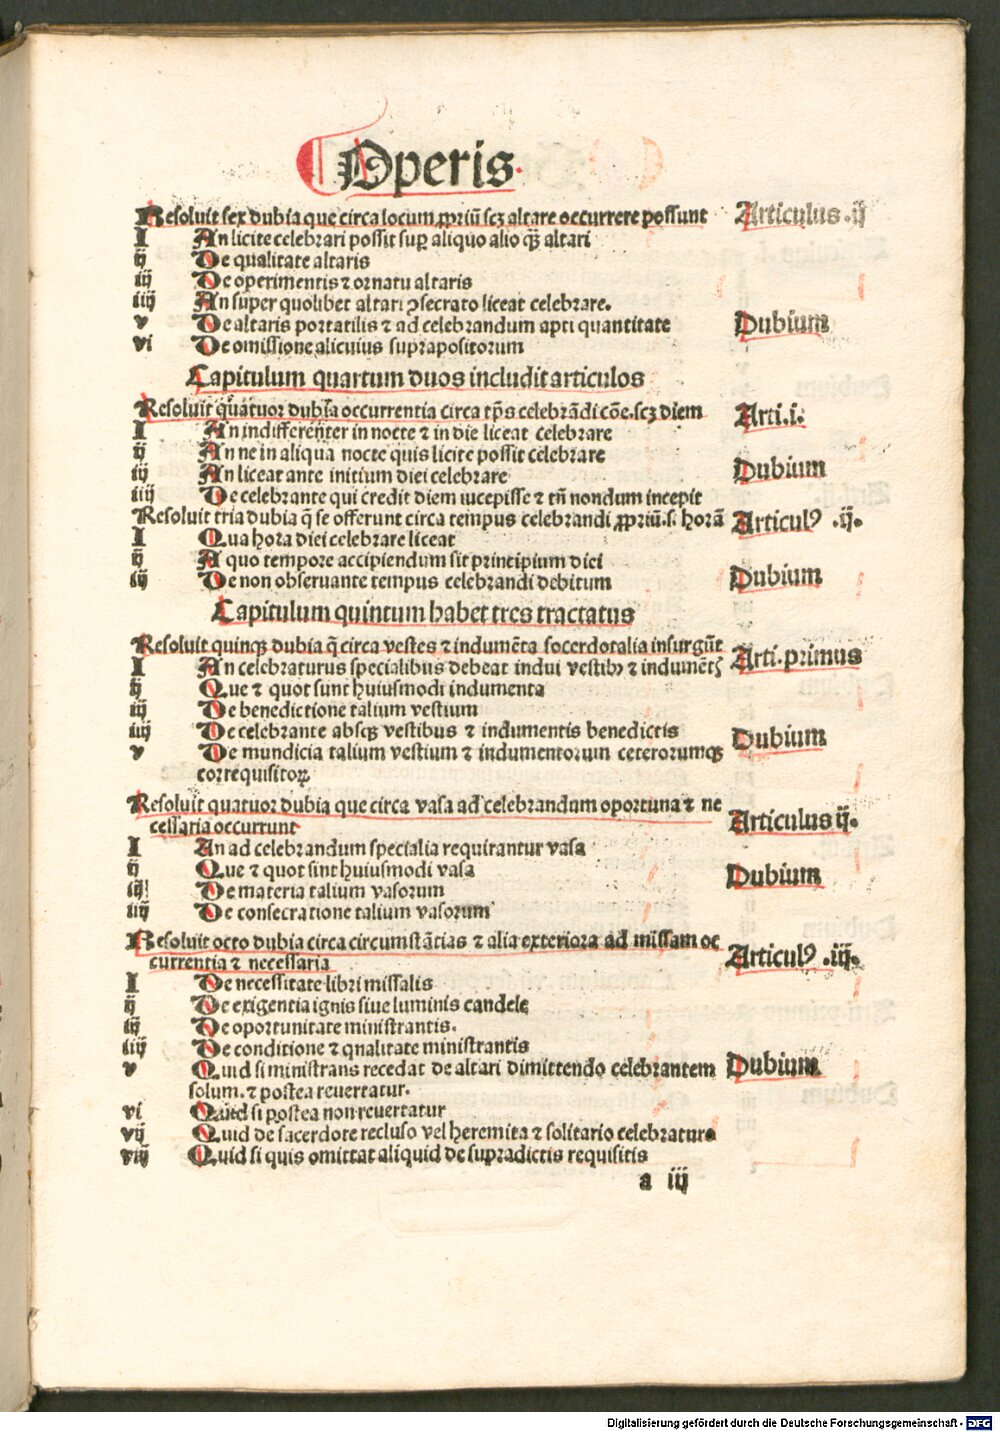 Operis
Resoluit sex dubia que circa locum ꝓpriũ scꝫ altare occurrere possunt Articulus .ij
I An licite celebrari possit suꝑ aliquo alio qꝫ altari
ij De qualitate altaris
iij De operimentis ⁊ ornatu altaris
iiij An super quolibet altari ꝯsecrato liceat celebrare.
v De altaris portatilis ⁊ ad celebrandum apti quantitate Dubium
vi De omissione alicuius suprapositorum
Capitulum quartum duos includit articulos
Resoluit quatuor dubia occurrentia circa tp̃s celebrãdi cõe.scꝫ diem Arti.i.
I An indifferenter in nocte ⁊ in die liceat celebrare
ij An ne in aliqua nocte quis licite possit celebrare
iij An liceat ante initium diei celebrare Dubium
iiij De celebrante qui credit diem iucepisse ⁊ tñ nondum incepit
Resoluit tria dubia q̃ se offerunt circa tempus celebrandi ꝓpriũ.s. horã Articulꝰ .ij.
I Qua hora diei celebrare liceat
ij A quo tempore accipiendum sit principium diei
iij De non obseruante tempus celebrandi debitum Dubium
Capitulum quintum habet tres tractatus
Resoluit quinqꝫ dubia q̃ circa vestes ⁊ indumẽta socerdotalia insurgũt Arti.primus
I An celebraturus specialibus debeat indui vestibꝫ ⁊ indumẽtꝭ
ij Que ⁊ quot sunt huiusmodi indumenta
iij De benedictione talium vestium
iiij De celebrante absqꝫ vestibus ⁊ indumentis benedictis Dubium
v De mundicia talium vestium ⁊ indumentorum ceterorumqꝫ
correquisitoꝝ
Resoluit quatuor dubia que circa vasa ad celebrandum oportuna ⁊ ne
cessaria occurrunt Articulus ij.
I An ad celebrandum specialia requirantur vasa
ij Que ⁊ quot sint huiusmodi vasa Dubium
iij De materia talium vasorum
iiij De consecratione talium vasorum
Resoluit octo dubia circa circumstãtias ⁊ alia exteriora ad missam oc
currentia ⁊ necessaria Articulꝰ .iij.
I De necessitate libri missalis
ij De exigentia ignis siue luminis candele
iij De oportunitate ministrantis.
iiij De conditione ⁊ qnalitate ministrantis
v Quid si ministrans recedat de altari dimittendo celebrantem Dubium
solum. ⁊ postea reuertatur.
vi Quid si postea non reuertatur
vij Quid de sacerdote recluso vel heremita ⁊ solitario celebrature
viij Quid si quis omittat aliquid de supradictis requisitis
a iij
Digitalisierung gefördert durch die Deutsche Forschungsgemeinschaft - DFG